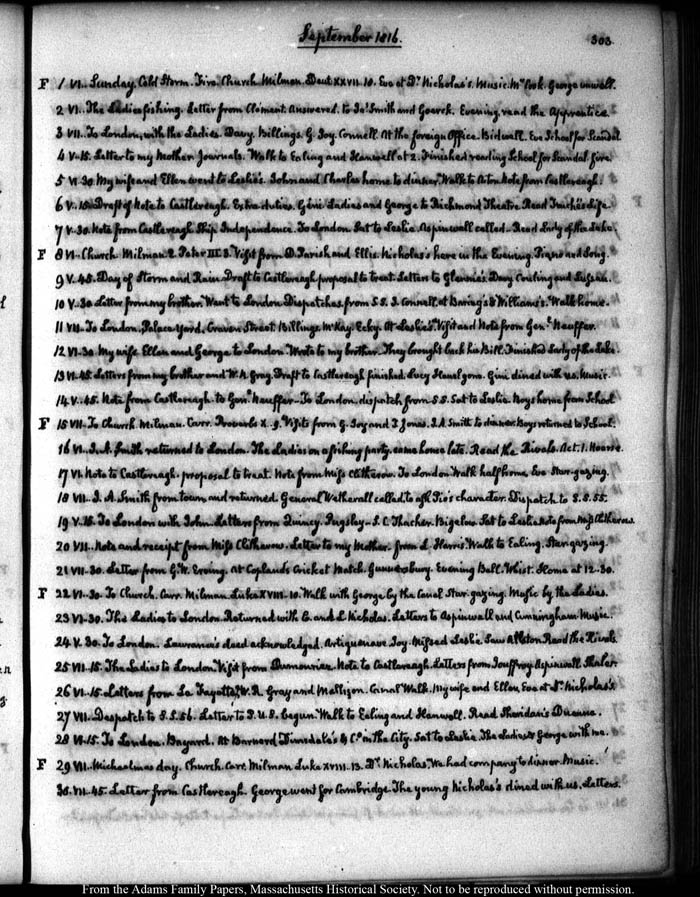 September 1816.
303
F 1 VI. Sunday. Cold Storm. Fire. Church. Milman. Deut XXVII. 10. Eve at Dr. Nicholas's. Music. Mr Cook. George unwell.
2 VI. The Ladies fishing. Letter from Clement. answered. to Ja's Smith and Goerck. Evening, read the Apprentice.
3 VII. To London, with the Ladies. Davy. Billings. G. Joy. Connell. At the foreign Office. Bidwell. Eve School for Scandal
4 V.15. Letter to my Mother. Journals. Walk to Ealing and Hanwell at 2. Finished reading School for Scandal. Fire.
5 VI.30. My wife and Ellen went to Leslie's. John and Charles home to dinner. Walk to Acton. Note from Castlereagh.
6 V.15. Draft of Note to Castlereagh. Extra duties. Gini Ladies and George to Richmond Theatre. Read Life.
7 V.30. Note from Castlereagh. Ship Independence. To London. Sat to Leslie. Aspinwall called. Read Lady of the Lake.
F 8 VI. Church. Milman. 2. Peter III. 3. Visit from D. Parish and Ellis. Nicholas's here in the Evening. Piano and Song.
9 V.45. Day of Storm and Rain. Draft to Castlereagh, proposal to treat. Letters to Glennie. Davy. Cowling and
10 V.30. Letter from my brother. Went to London. Dispatches from S.S. J. Connell, at Baring's & Williams's. Walk home.
11 VII. To London. Palace Yard. Craven Street. Billings. McKay. Ecky. At Leslie's. Visit and Note from Genl. Neuffer.
12 VI.30. My wife, Ellen and George to London. Wrote to my brother. They brought back his Bill. Finished Lady of the Lake.
13 VI.45. Letters from my brother and W. R. Gray. Draft to Castlereagh finished. Lucy Housel gone. Gini dined with us. Music.
14 V.45. Note from Castlereagh. to Genl. Neuffer. To London, dispatch from S.S. Sat to Leslie. Boys home from School
F 15 VII. To Church. Milman. Carr. Proverbs X. 9. Visits from G. Joy and T. Jones. J. A. Smith to dinner. Boys returned to School.
16 VI. J. A. Smith returned to London. The Ladies on a fishing party. came home late. Read the Rivals. Act. 1. Hoarse.
17 VI. Note to Castlereagh. proposal to treat. Note from Miss Clitherow. To London. Walk half home. Eve Star-gazing.
18 VII. J. A. Smith from town and returned. General Wetherall called to ask Pio's character. Dispatch to S.S. 55.
19 V.15. To London with John. Letters from Quincy. Pugsley. S. C. Thacher. Bigelow. Sat to Leslie. Note from Miss Clitherow.
20 VII. Note and receipt from Miss Clitherow. Letter to my Mother. from L. Harris. Walk to Ealing. Star gazing.
21 VII.30. Letter from G. W. Erving. At Copland's Cricket Match. Gunnersbury. Evening Ball. Whist. Home at 12.30.
F 22 VI.30. To Church. Carr. Milman. Luke XVIII. 10. Walk with George by the Canal. Star gazing. Music by the Ladies.
23 VI.30. The Ladies to London. Returned with E. and L. Nicholas. Letters to Aspinwall and Cunningham. Music.
24 V.30. To London. Lawrence's deed acknowledged. Artiguenave. Joy. Missed Leslie. Saw Allston. Read the Rivals
25 VII.15. The Ladies to London. Visit from Dumouriez. Note to Castlereagh. Letters from Jouffroy. Aspinwall. Thaler.
26 VI.15. Letters from La Fayette. W. R. Gray and Mattison. Canal Walk. My wife and Ellen Eve at Dr. Nicholas's
27 VII. Despatch to S.S. 56. Letter to P.U.S. begun. Walk to Ealing and Hanwell. Read Sheridan's Duenna.
28 VI.15. To London. Bayard. At Barnard Dimsdale's & Co. in the City. Sat to Leslie. The Ladies & George with me.
F 29 VII. Michaelmas day. Church. Carr. Milman Luke XVIII. 13. Dr. Nicholas. We had company to dinner. Music.
30. VII.45. Letter from Castlereagh. George went for Cambridge. The young Nicholas's dined with us. Letters.
From the Adams Family Papers, Massachusetts Historical Society. Not to be reproduced without permission.